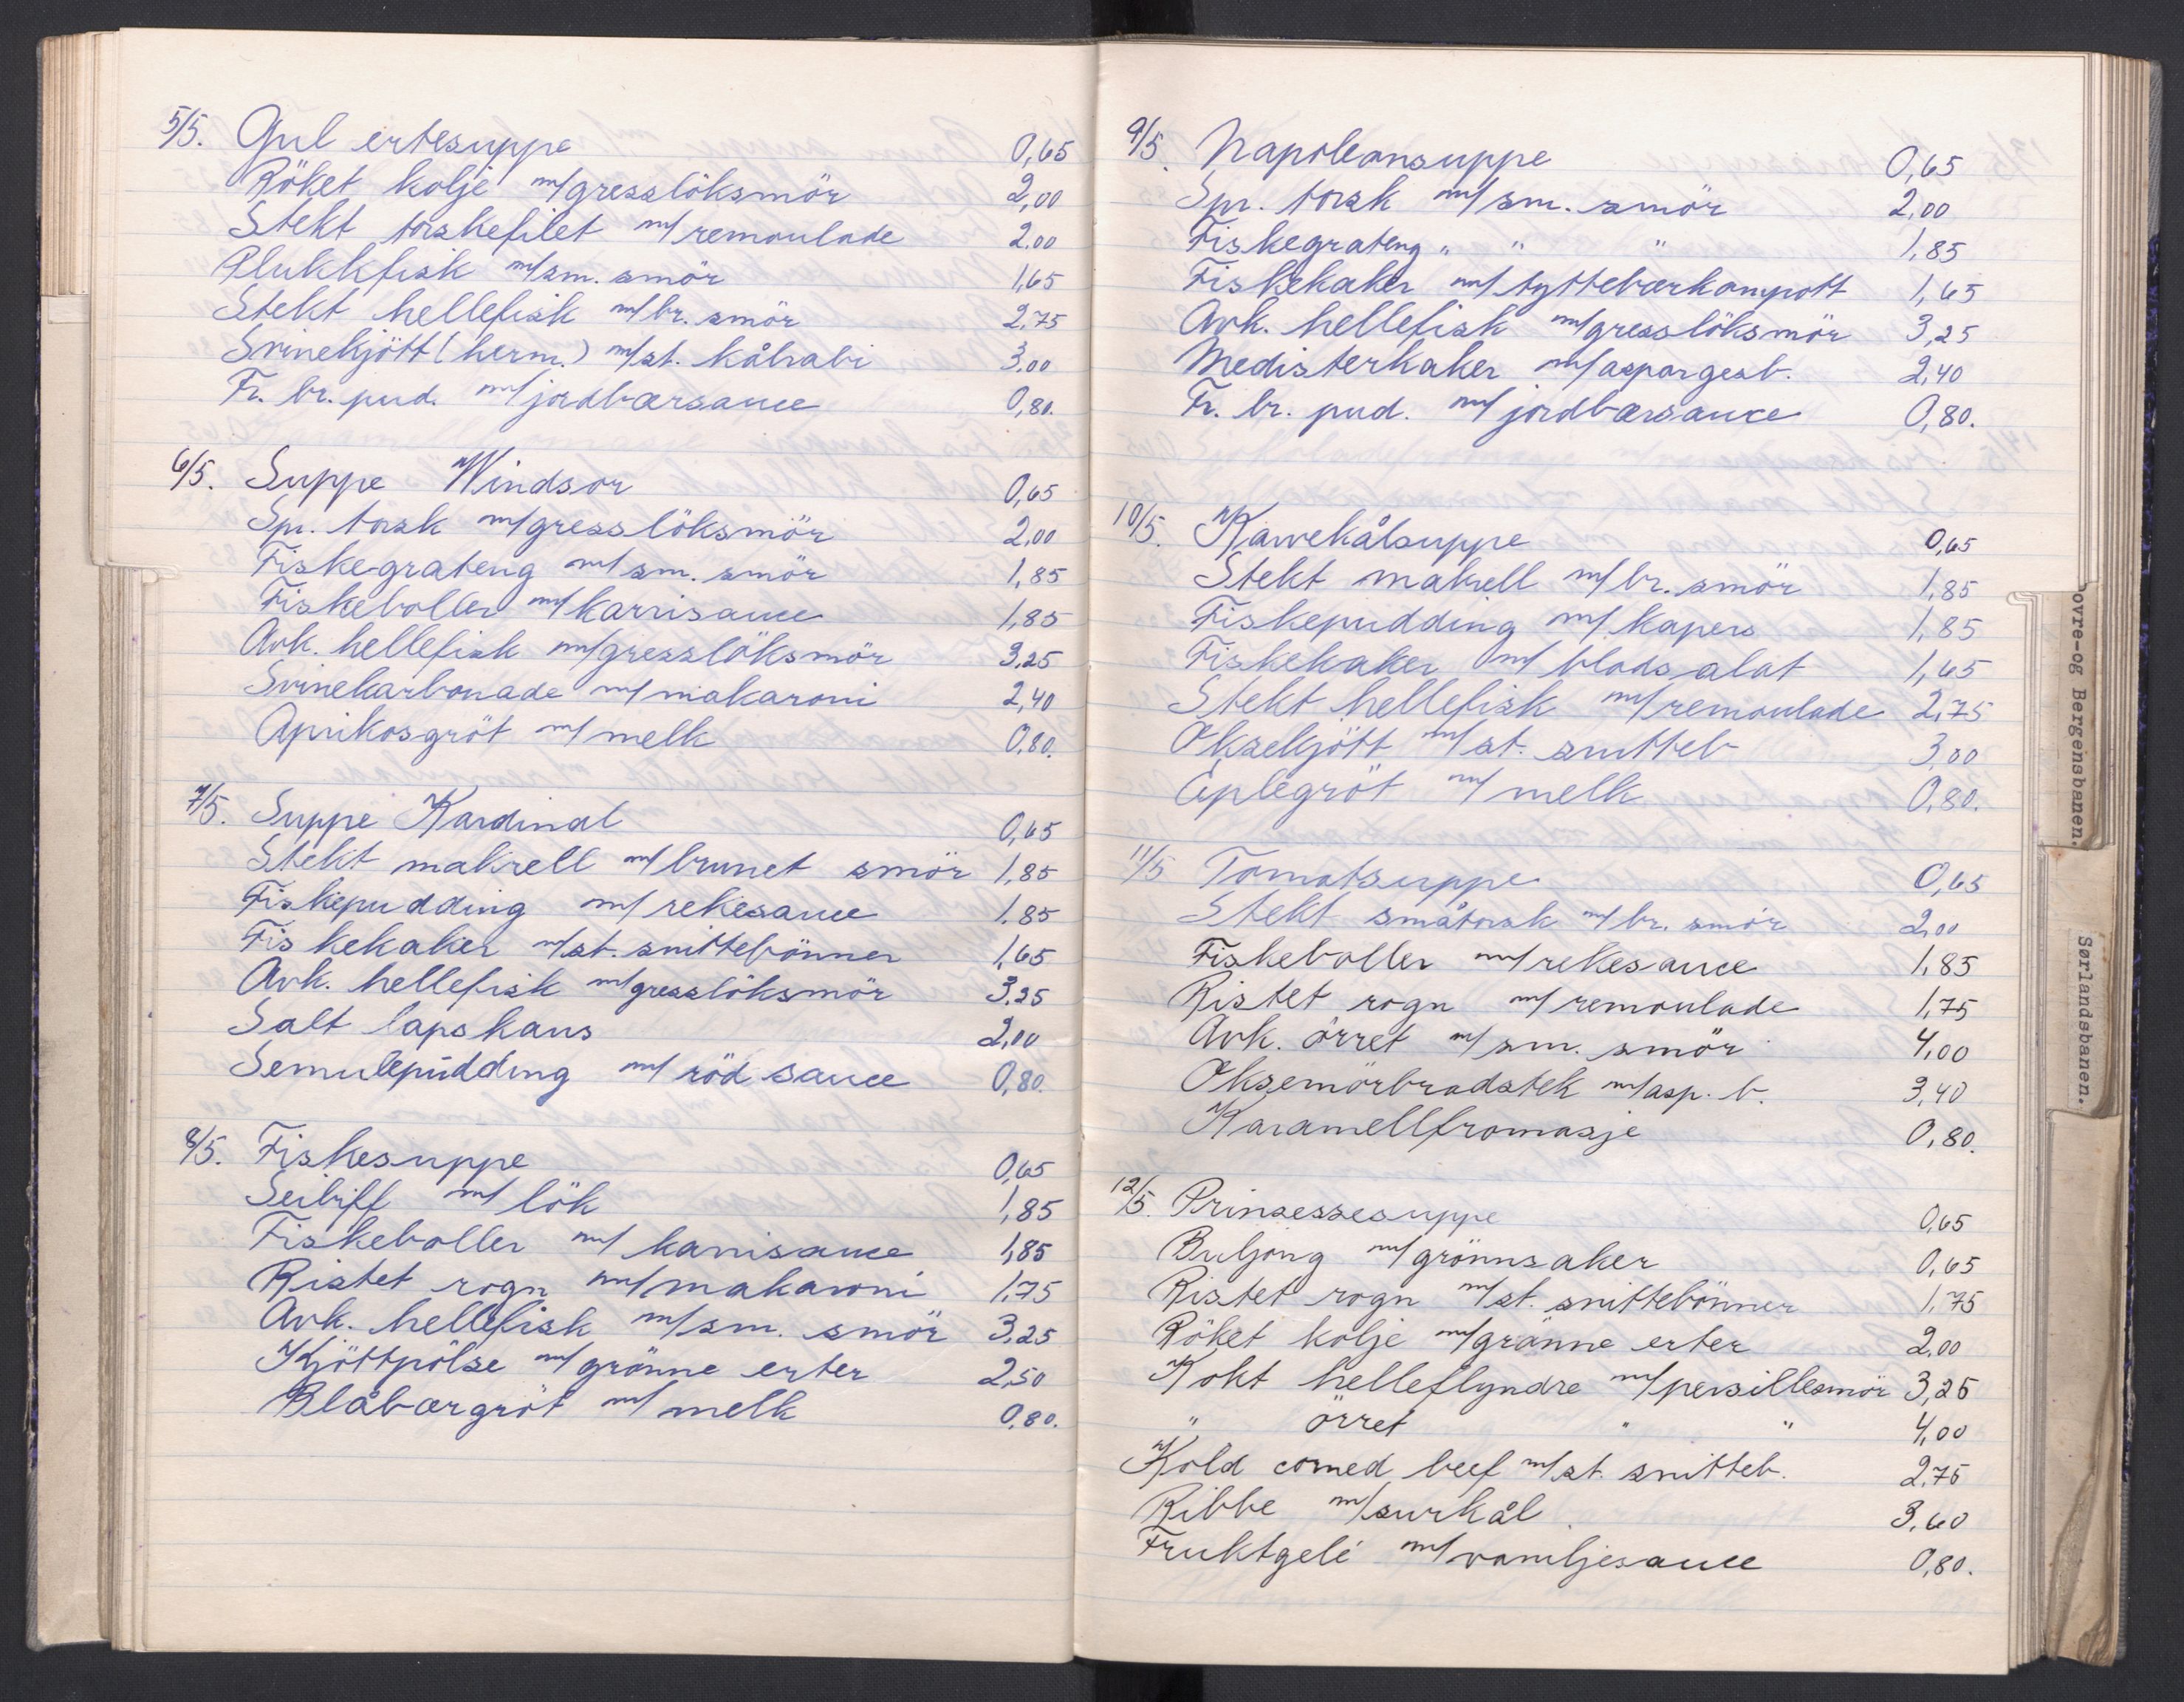 5/5. Gul ertesuppe 0,65
Röket kolje m/gresslöksmör 2,00
Stekt torskefilet m/remoulade 2.00
Plukkfisk m/sm. smör 1,65
Stekt hellefisk m/br. smör 2,75
Svinekjött (herm.) m/st. kålrabi 3,00
Fr. br. pud. m/jordbærsauce 0,80.
6/5. Suppe Windsor 0,65
Spr. torsk m/gresslöksmör 2,00
Fiskegrateng m/sm. smör 1,85
Fiskeboller m/karrisauce 1,85
Avk. hellefisk m/gresslöksmör 3,25
Svinekarbonade m/makaroni 2,40
Aprikosgröt m/melk 0,80.
7/5. Suppe Kardinal 0,65
Stekt makrell m/brunet smör 1,85
Fiskepudding m/rekesauce 1,85
Fiskekaker m/st. snittebönner 1,65
Avk. hellefisk m/gresslöksmör 3,25
Salt lapskaus 2,00
Semulepudding m/röd sauce 0,80.
8/5. Fiskesuppe 0,65
Seibiff m/lök 1,85
Fiskeboller m/karrisauce 1,85
Ristet rogn m/makaroni 1,75
Avk. hellefisk m/sm. smör 3,25
Kjöttpölse m/grönne erter 2,50
Blåbærgröt m/melk 0,80.
9/5. Napoleonsuppe 0,65
Spr. torsk m/sm. smör 2,00
Fiskegrateng " " " 1,85
Fiskekaker m/tyttebærkompott 1,65
Avk. hellefisk m/gresslöksmör 3,25
Medisterkaker m/aspargesb. 2,40
Fr. br. pud. m/jordbærsauce 0,80.
10/5. Karvekålsuppe 0,65
Stekt makrell m/br. smör 1,85
Fiskepudding m/kapers 1,85
Fiskekaker m/bladsalat 1,65
Stekt hellefisk m/remoulade 2,75
Oksekjött m/st. snitteb 3,00
Eplegröt m/melk 0,80.
11/5 Tomatsuppe 0,65
Stekt småtorsk m/br. smör 2,00
Fiskeboller m/rekesauce 1,85
Ristet rogn m/remoulade 1,75
Avk. örret m/sm. smör 4,00
Oksemörbradstek m/asp. b. 3,40
Karamellfromasje 0,80.
12/5. Prinsessesuppe 0,65
Buljong m/grönnsaker 0,65
Ristet rogn m/st. snittebönner 1,75
Röket kolje m/grönne erter 2,00
Kokt helleflyndre m/persillesmör 3,25
" örret " " 4,00
Kold corned beef m/st. snitteb. 2,75
Ribbe m/surkål 3,60
Fruktgelé m/vaniljesauce 0,80.
ovre-og Bergensbanen.
Sørlandsbanen.